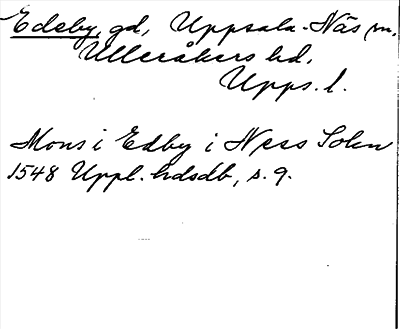 Edeby, gd, Uppsala-Näs sn,
Ulleråkers hd,
Upps. l.
Mons i Edby i Ness Sokn
1548 Uppl. hdsdb, s. 9.